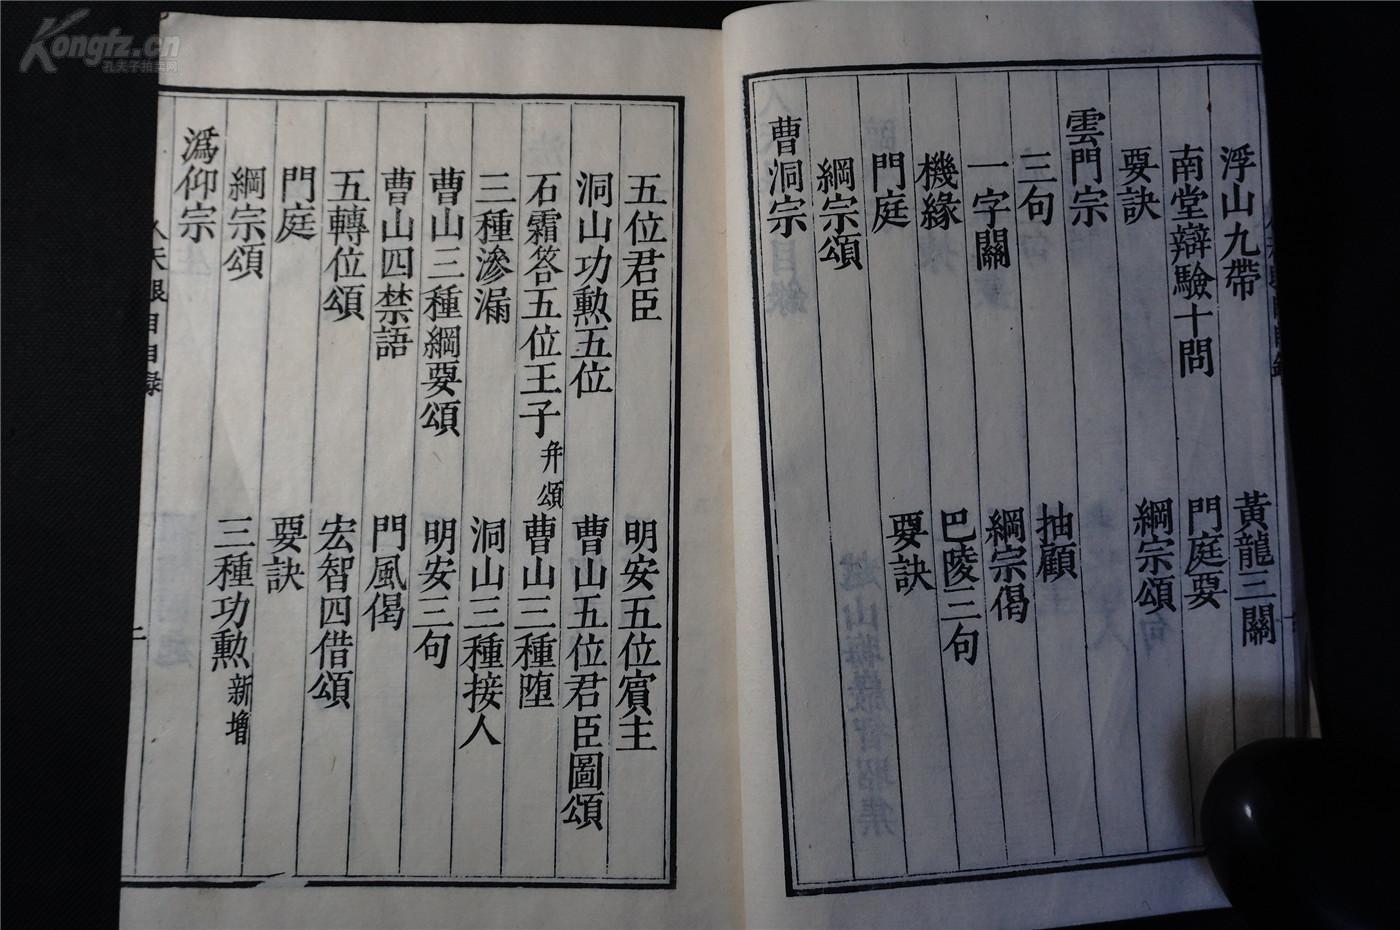 Kongfz.cn
孔夫子拍卖网
浮山九帶 黃龍三關
南堂辯驗十問 門庭要
要訣 綱宗頌
雲門宗
三句 抽顧
一字關 綱宗偈
機緣 巴陵三句
門庭 要訣
綱宗頌
曹洞宗
五位君臣 明安五位賓主
洞山功勲五位 曹山五位君臣圖頌
石霜答五位王子 并頌 曹山三種墮
三種滲漏 洞山三種接人
曹山三種綱要頌 明安三句
曹山四禁語 門風偈
五轉位頌 宏智四借頌
門庭 要訣
綱宗頌 三種功勲 新增
潙仰宗
人天眼目目録 二